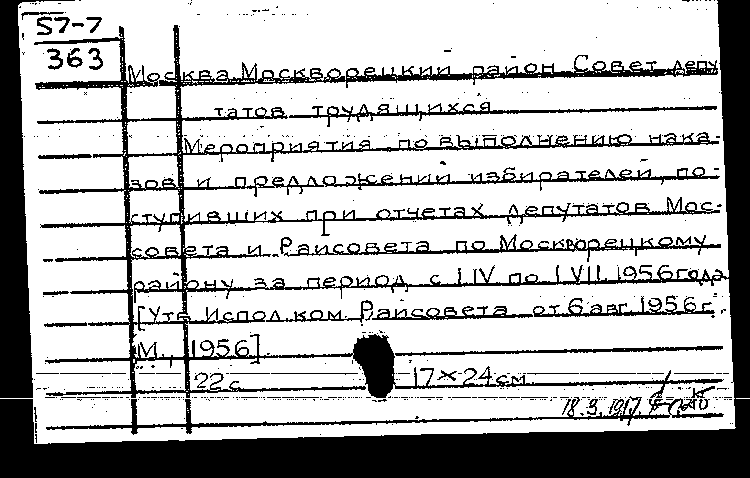 57-7
363
Москва. Москворецкий район. Совет депу-
татов трудящихся.
Мероприятия по выполнению нака-
зов и предложений избирателей, по-
ступивших при отчетах депутатов Мос-
совета и Райсовета по Москворецкому
району за период с 1 IV по 1 VII 1956 года
[Утв Испол.ком. Райсовета от 6 авг 1956 г.
М., 1956].
22 с. 17×24 см
18.3.